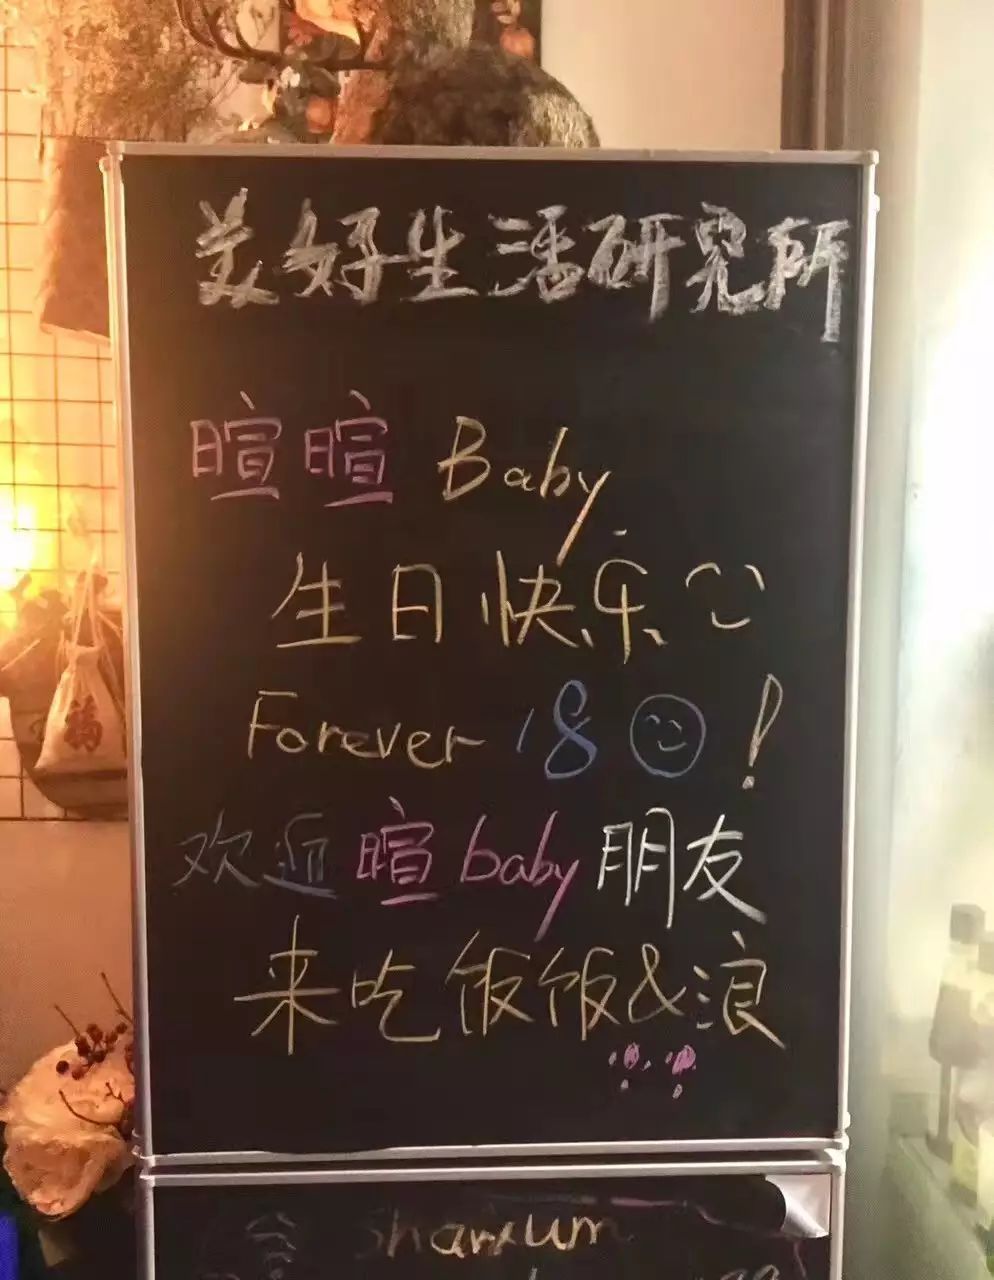 美好生活研究所
暄暄 Baby
生日快乐
Forever 18 !
欢迎暄baby朋友
来吃饭饭&浪
福